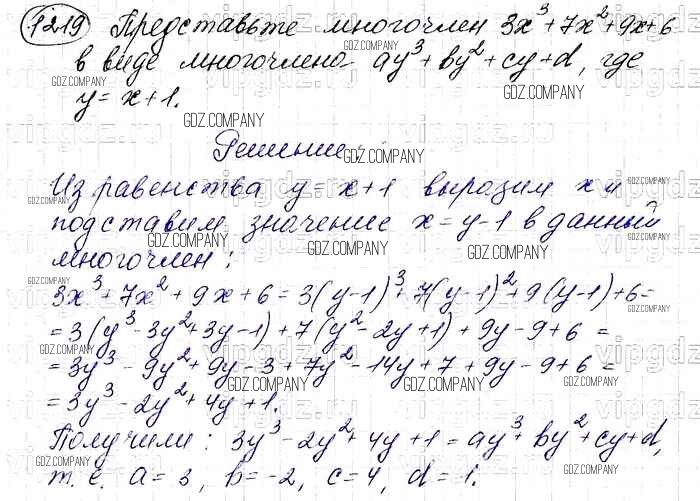 1219 Представьте многочлен 3x³+7x²+9x+6
в виде многочлена ay³+by²+cy+d, где
y=x+1.
Решение:
Из равенства y=x+1 выразим x и
подставим значение x=y-1 в данный
многочлен:
3x³+7x²+9x+6=3(y-1)³+7(y-1)²+9(y-1)+6=
=3(y³-3y²+3y-1)+7(y²-2y+1)+9y-9+6=
=3y³-9y²+9y-3+7y²-14y+7+9y-9+6=
=3y³-2y²+4y+1.
Получили: 3y³-2y²+4y+1=ay³+by²+cy+d,
т.е. a=3, b=-2, c=4, d=1.